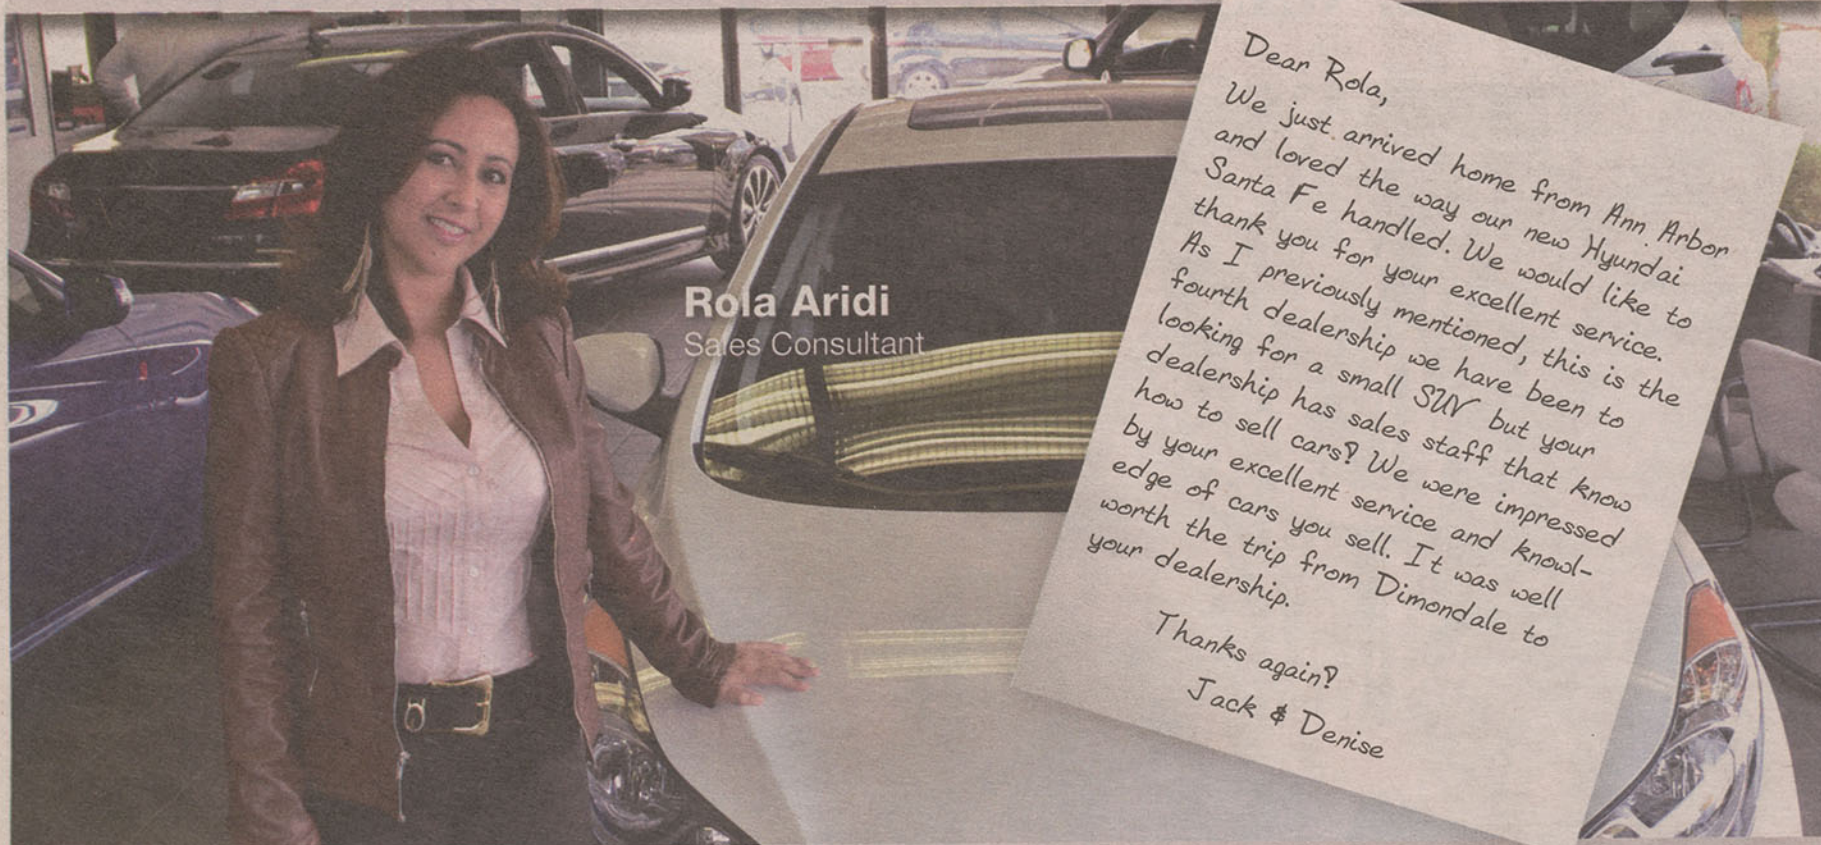 Rola Aridi
Sales Consultant
Dear Rola,
We just arrived home from Ann Arbor
and loved the way our new Hyundai
Santa Fe handled. We would like to
thank you for your excellent service.
As I previously mentioned, this is the
fourth dealership we have been to
looking for a small SUV but your
dealership has sales staff that know
how to sell cars! We were impressed
by your excellent service and knowl-
edge of cars you sell. It was well
worth the trip from Dimondale to
your dealership.
Thanks again!
Jack & Denise